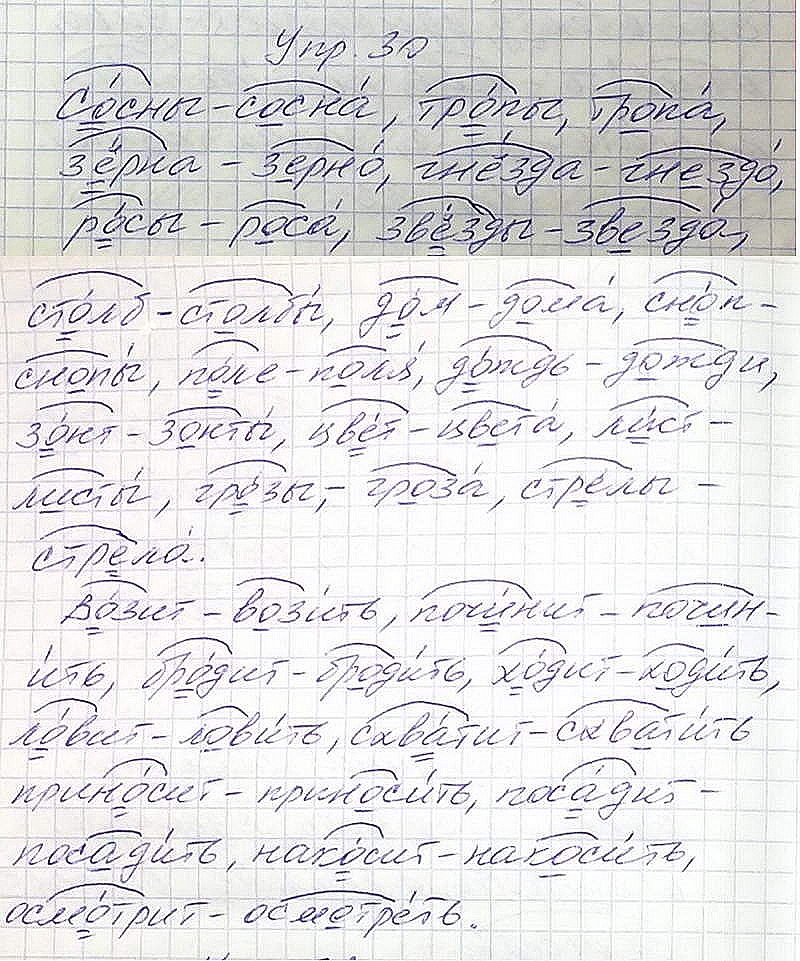 Упр. 30
Со́сны - сосна́, тро́пы, тропа́,
зёрна - зерно́, гнёзда - гнездо́,
ро́сы - роса́, звёзды - звезда́,
сто́лб - столбы́, до́м - дома́, сно́п -
снопы́, по́ле - поля́, до́ждь - дожди,
зо́нт - зонты́, цве́т - цвета́, ли́ст -
листы́, гро́зы, - гроза́, стре́лы -
стрела́.
Во́зит - вози́ть, почи́нит - почин-
и́ть, бро́дит - броди́ть, хо́дит - ходи́ть,
ло́вит - лови́ть, схва́тит - схвати́ть
прино́сит - приноси́ть, поса́дит -
посади́ть, нако́сит - накоси́ть,
осмо́трит - осмотре́ть.